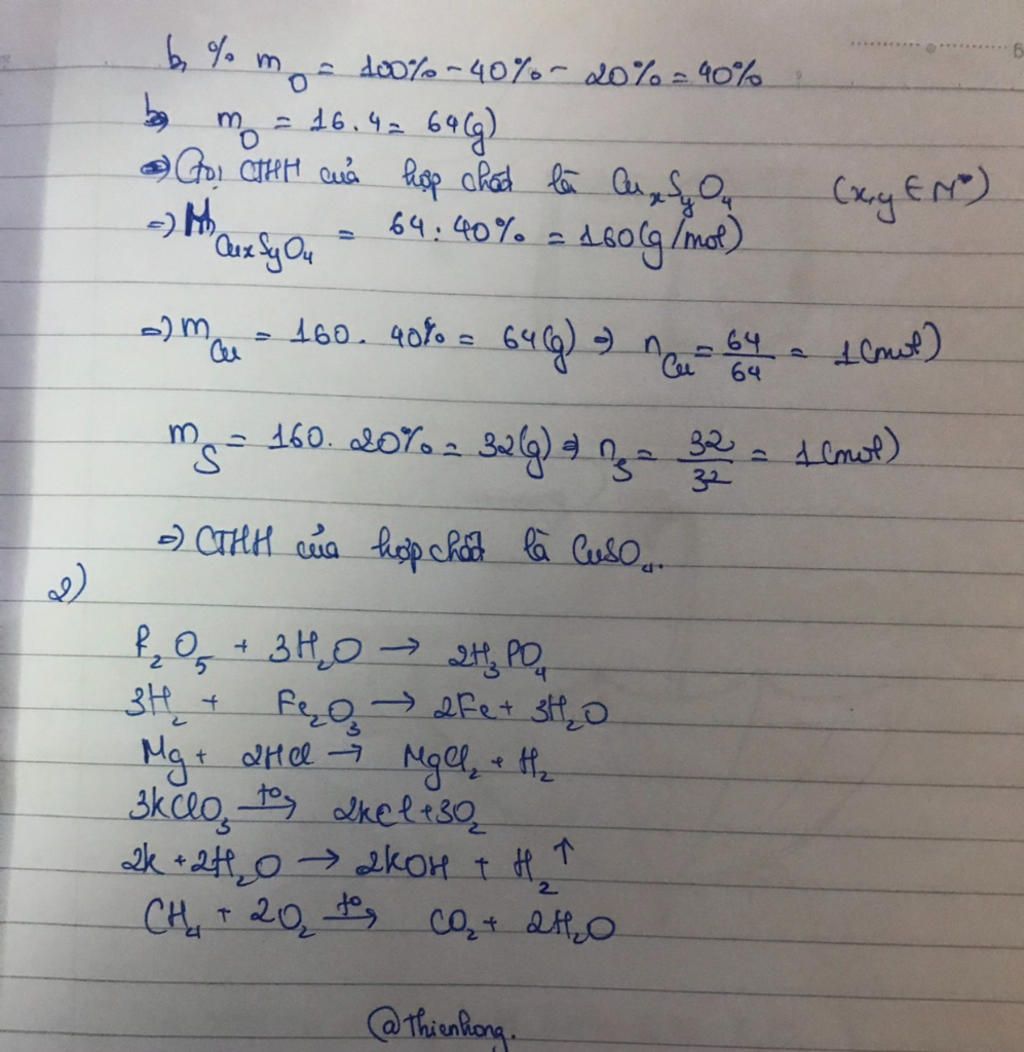 b, % m_O = 100% - 40% - 20% = 40%
b m_O = 16.4 = 64(g)
=) Gọi CTHH của hợp chất là Cu_xS_yO_4 (x,y ∈ N*)
=) M_{Cu_xS_yO_4} = 64 : 40% = 160(g/mol)
=) m_Cu = 160. 40% = 64(g) => n_Cu = 64/64 = 1(mol)
m_S = 160. 20% = 32(g) => n_S = 32/32 = 1(mol)
=) CTHH của hợp chất là CuSO₄.
2)
P₂O₅ + 3H₂O → 2H₃PO₄
3H₂ + Fe₂O₃ → 2Fe + 3H₂O
Mg + 2HCl → MgCl₂ + H₂
3KClO₃ —t°→ 2KCl + 3O₂
2K + 2H₂O → 2KOH + H₂↑
CH₄ + 2O₂ —t°→ CO₂ + 2H₂O
@Thienhong.